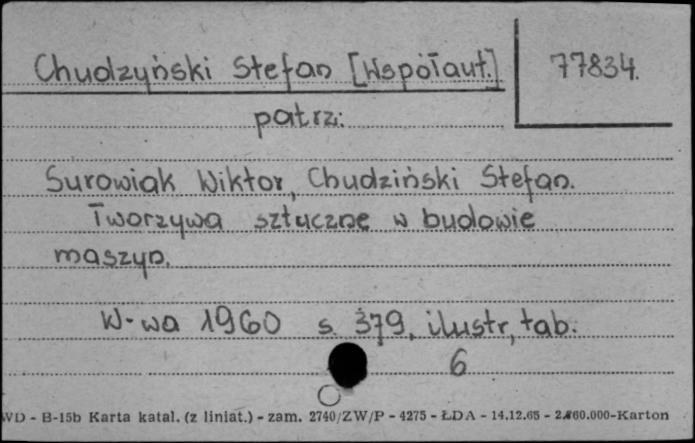 Chudzyński Stefan [Współaut.]
77834.
patrz:
Surowiak Wiktor, Chudziński Stefan.
Tworzywa sztuczne w budowie
maszyn.
W-wa 1960 s. 379, ilustr, tab.
6
WD - B-15b Karta katal. (z liniat.) - zam. 2740/ZW/P - 4275 - ŁDA - 14.12.65 - 2.860.000-Karton